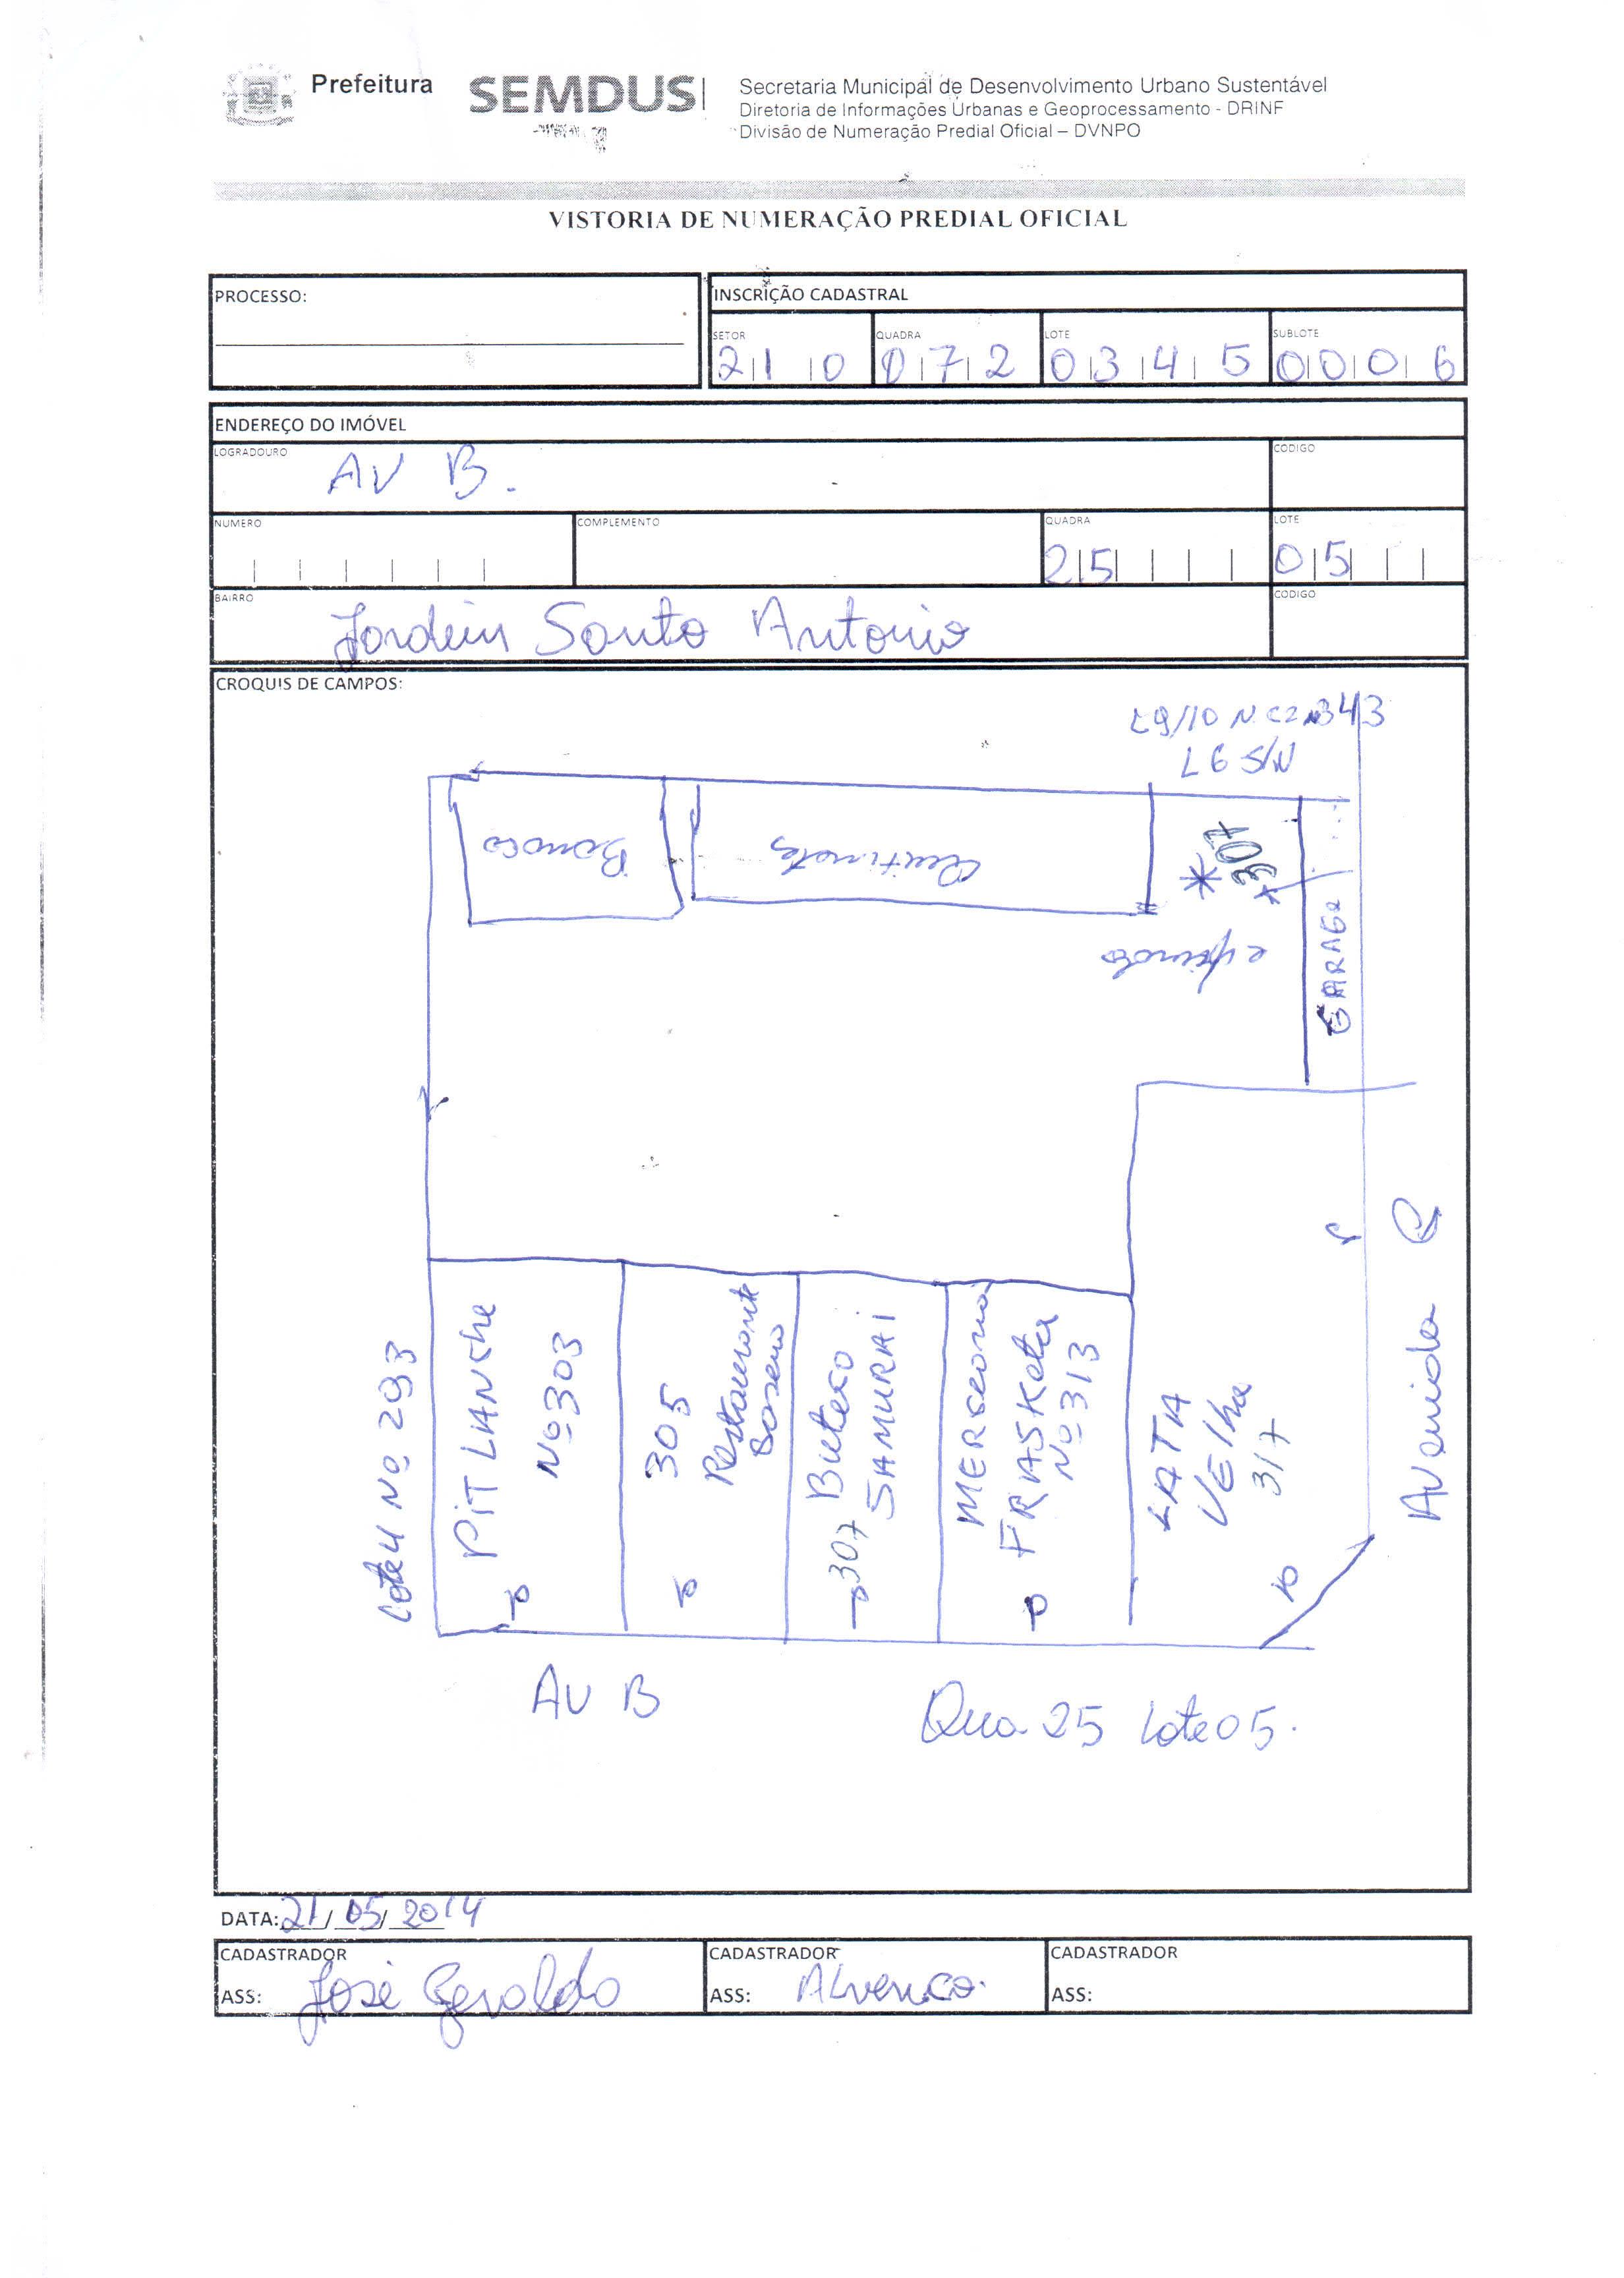 Prefeitura
SEMDUS
Secretaria Municipal de Desenvolvimento Urbano Sustentável
Diretoria de Informações Urbanas e Geoprocessamento - DRINF
Divisão de Numeração Predial Oficial – DVNPO
VISTORIA DE NUMERAÇÃO PREDIAL OFICIAL
PROCESSO:
INSCRIÇÃO CADASTRAL
SETOR QUADRA LOTE SUBLOTE
210 072 0345 0006
ENDEREÇO DO IMÓVEL
LOGRADOURO CODIGO
AV B.
NUMERO COMPLEMENTO QUADRA LOTE
25 05
BAIRRO CODIGO
Jardim Santo Antonio
CROQUIS DE CAMPOS:
343
L6 S/N
307
GARAGE
Lote 4 Nº 293
PIT LANCHE
Nº 303
305
Restaurante
307 Buteco
SAMURAI
MERCEARIA
FRASKETA
Nº 313
LATA
VElha
317
Avenida
AV B
Qua 25 Lote 05.
DATA: 21/05/2014
CADASTRADOR CADASTRADOR CADASTRADOR
ASS: José Geraldo ASS: ASS: